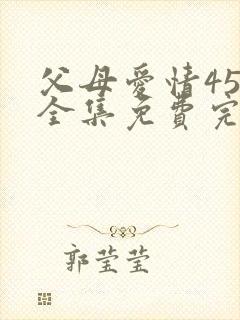 父母爱情45
全集免费完
郭莹莹